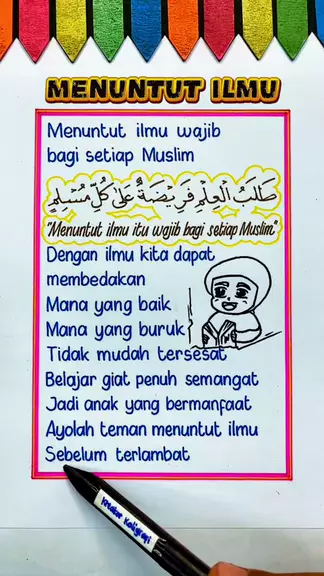 MENUNTUT ILMU
Menuntut ilmu wajib
bagi setiap Muslim
طَلَبُ الْعِلْمِ فَرِيْضَةٌ عَلَى كُلِّ مُسْلِمٍ
"Menuntut ilmu itu wajib bagi setiap Muslim"
Dengan ilmu kita dapat
membedakan
Mana yang baik
Mana yang buruk
Tidak mudah tersesat
Belajar giat penuh semangat
Jadi anak yang bermanfaat
Ayolah teman menuntut ilmu
Sebelum terlambat
Kreator Kaligrafi